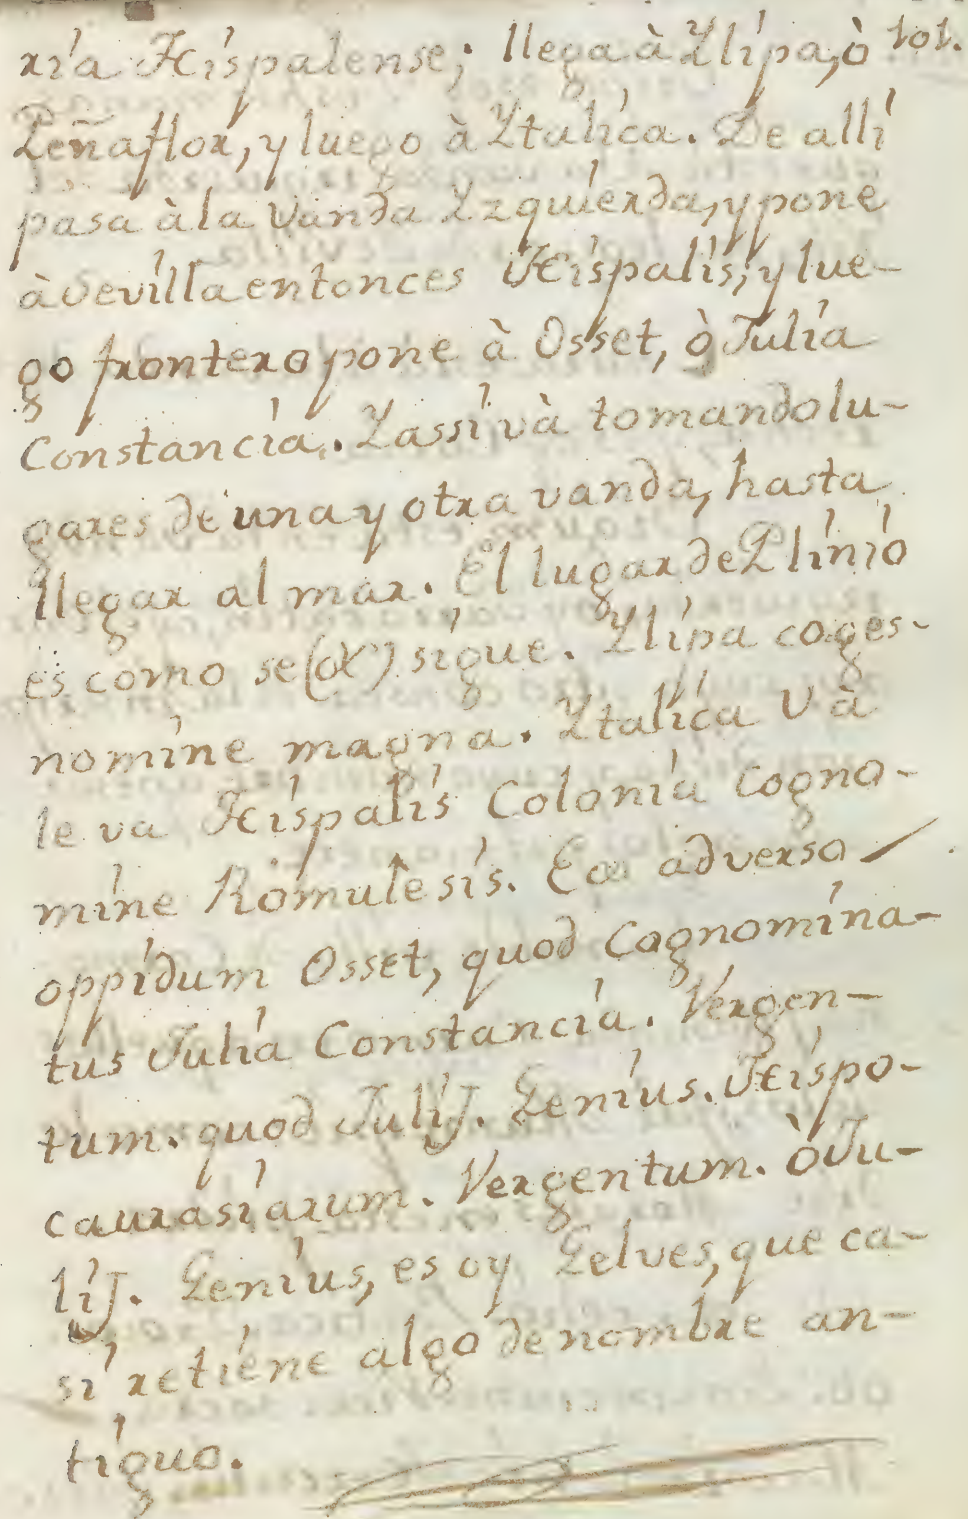 ria Hispalense; llega à Ylipa, ò tot.
Peñaflor, y luego à Ytalica. De alli
pasa à la vanda Yzquierda, y pone
à Sevilla entonces Hispalis; y lue-
go frontero pone à Osset, ò Julia
Constancia. Y assi và tomando lu-
gares de una y otra vanda, hasta
llegar al mar. El lugar de Plinio
es como se (α) sigue. Ylipa coges-
nomine magna. Ytalica Và
le va Hispalis Colonia Cogno-
mine Romulesis. Ex adverso
oppidum Osset, quod Cognomina-
tus Julia Constancia. Vergen-
tum. quod Julij. Genius. Hispo-
caurasiarum. Vergentum. ò Ju-
lij. Genius, es oy Gelves, que ca-
si retiene algo de nombre an-
tiguo.